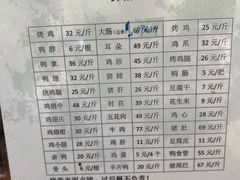 烧鸡 32元/斤 大肠(五香) 烤鸡 25元/斤
鸭脖 6元/根 耳朵 49元/斤 鸡爪 32元/斤
鸭掌 36元/斤 鸡胗 40元/斤 烤鸡腿 26元/斤
鸭翅 32元/斤 猪蹄 40元/斤 鸭肠 5元/把
烧鸡腿 30元/斤 猪肝 30元/斤 豆腐干 7元/斤
鸡翅中 48元/斤 肘花 39元/斤 花生米 9元/斤
鸡翅尖 30元/斤 五花肉 49元/斤 鸡心 28元/斤
鸡翅根 30元/斤 牛肉 77元/斤 猪肚 77元/斤
鸡小腿 28元/斤 鸡蛋 2元/个 豆腐皮 11元/斤
卤鸭 20元/斤 鸡蛋 5元/4个 鸭食管 55元/斤
骨头 元/根 大片鸡 22元/斤 猪尾巴 67元/斤